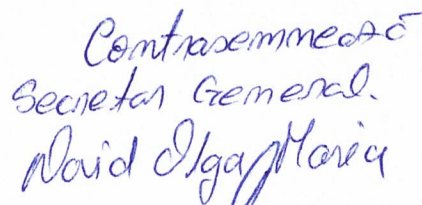 Contrasemnează
Secretar General.
David Olga Maria